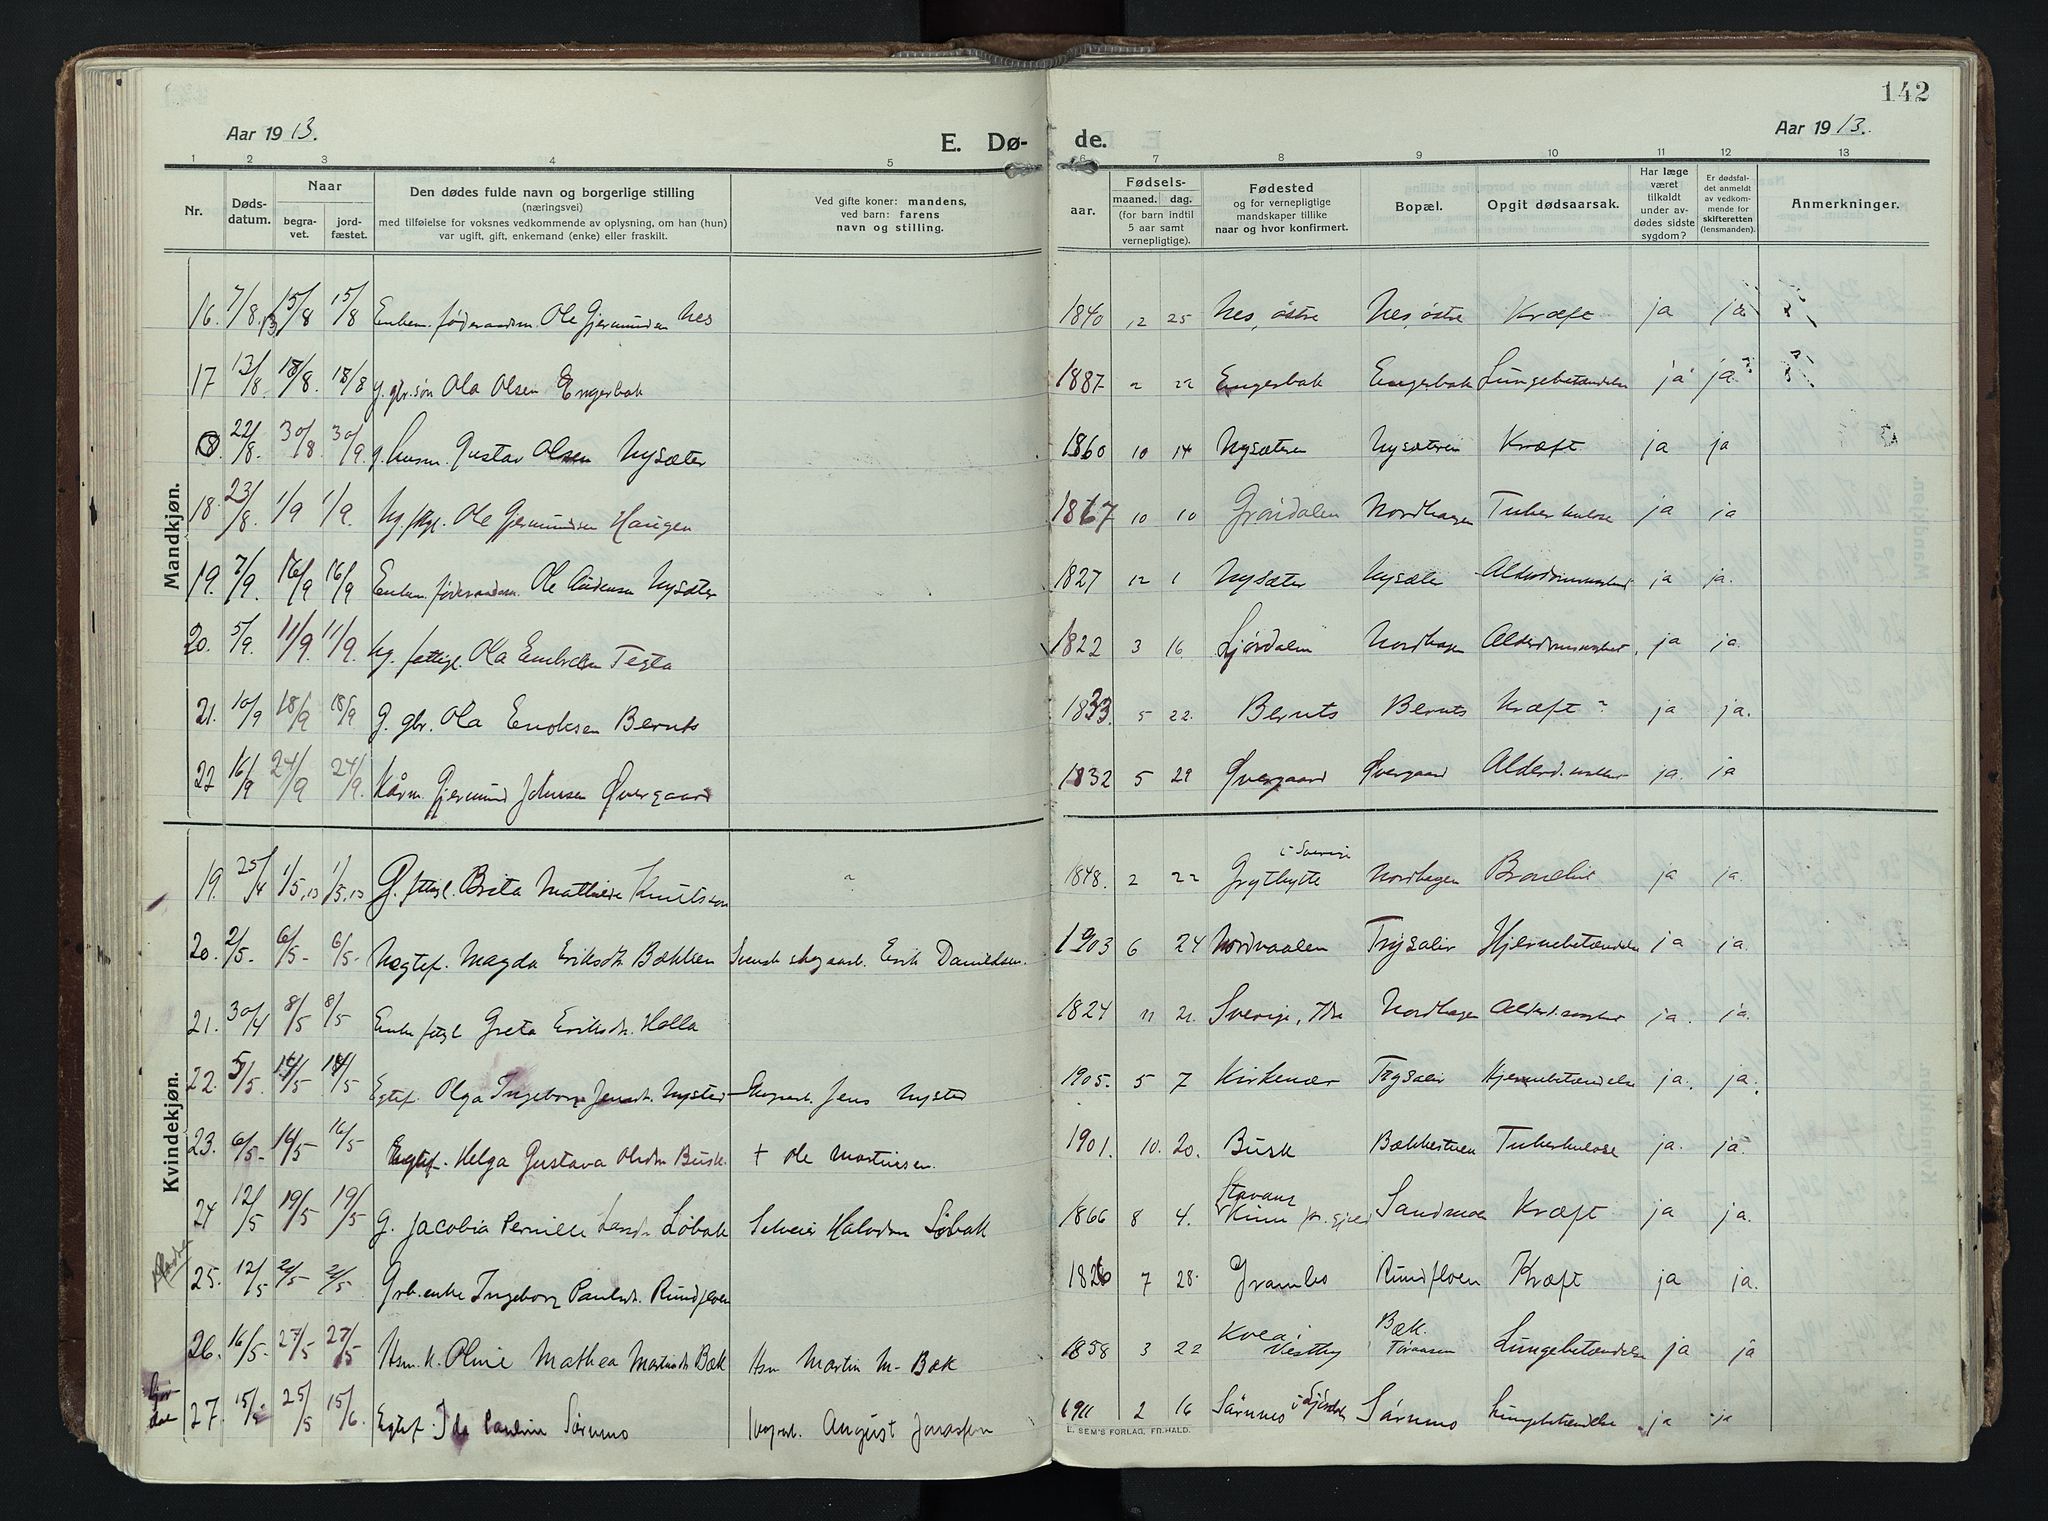 142
Aar 1913.
E. Dø-
de.
Aar 1913.
1 2 3 4 5 6 7 8 9 10 11 12 13
Nr.
Døds-
datum.
Naar
begra-
vet.
jord-
fæstet.
Den dødes fulde navn og borgerlige stilling
(næringsvei)
med tilføielse for voksnes vedkommende av oplysning, om han (hun)
var ugift, gift, enkemand (enke) eller fraskilt.
Ved gifte koner: mandens,
ved barn: farens
navn og stilling.
aar.
Fødsels-
maaned. dag.
(for barn indtil
5 aar samt
vernepligtige).
Fødested
og for vernepligtige
mandskaper tillike
naar og hvor konfirmert.
Bopæl.
Opgit dødsaarsak.
Har læge
været
tilkaldt
under av-
dødes sidste
sygdom?
Er dødsfal-
det anmeldt
av vedkom-
mende for
skifteretten
(lensmanden).
Anmerkninger.
Mandkjøn.
16. 7/8.13 15/8 15/8 Enkem. føderaadsm. Ole Gjermundsen Nes 1840 12 25 Nes, østre Nes, østre Kræft ja ja
17 13/8. 18/8. 18/8 g. gbr.søn Ola Olsen Engerbak 1887 2 22 Engerbak Engerbak Lungebetændelse ja ja
22/8. 30/8. 30/9. g. husm. Gustav Olsen Nysæter 1860 10 14 Nysæteren Nysæteren Kræft. ja ja
18. 23/8. 1/9 1/9. Ole Gjermundsen Haugen 1867 10 10 Grøndalen Nordhagen Tuberkulose ja ja
19. 7/9. 16/9 16/9 Enkem. føderaadsm. Ole Nysæter 1827 12 1 Nysæter Nysæter Alderdomssvakhet ja ja.
20. 5/9. 11/9. 11/9. Ug. fattigl. Ola Embretsen Tegta 1822 3 16. Ljørdalen Nordhagen Alderdomssvakhet. ja ja.
21. 10/9 18/9 18/9 G. gbr. Ola Bernts 1833. 5 22. Bernts Bernts Kræft ? ja ja.
22 16/9 24/9 24/9. Kårm. Gjermund Johnsen Øvergaard 1832 5 29 Øvergaard Øvergaard ja. ja
Kvindekjøn.
19. 25/4 1/5,13 1/5,13 G. fttgl. Brita Mathilda Knutsson ? 1848. 2 22 Grythytte i Sverige Nordhagen ja ja.
20. 2/5. 6/5- 6/5- Magda Eriksdtr. Bækken Svensk Erik Danielsen. 1903 6 24 Nordvaalen Trysaeir Hjernebetændelse ja ja.
21. 30/4 8/5 8/5 Enke fttgl Greta Eriksdr. Holla 1824 11 21. Sverige, Idre Nordhagen ja. ja.
22. 5/5. 14/5 14/5 Egtef. Olga Ingeborg Jensdtr. Nysted Jens Nysted 1905. 5 7 Kirkenær Trysaeir Hjernebetændelse ja. ja.
23. 6/5- 16/5- 16/5 Egtef. Helga Gustava Olsdtr Busk. + Ole Martinsen. 1901. 10. 20. Busk Bækkestuen Tuberkulose ja. ja
24 12/5 19/5 19/5 G. Jacobia Pernille Løbak Halvdan Løbak 1866 8 4. Kinn pr.gjeld Sandmoen Kræft ja ja.
25. 12/5 21/5 21/5. enke Ingeborg Paulsdt. Rundfloen 1826 7 28. Grambo Rundfloen Kræft ja ja.
26. 16/5- 27/5 27/5 Hsm.k. Oline Mathea Martinsdr. Bæk Hsm Martin M. Bæk 1858 3 22 Kvea i Vestby Bæk. Tøraasen Lungebetændelse ja ja
27. 15/5 25/5 15/6. Egtef. Ida Pauline Sørnmo August Jonassen 1911 2 16 Sørnmo i Ljørdalen Sørnmo Lungebetændelse ja ja
E. SEM'S FORLAG, FR.HALD.